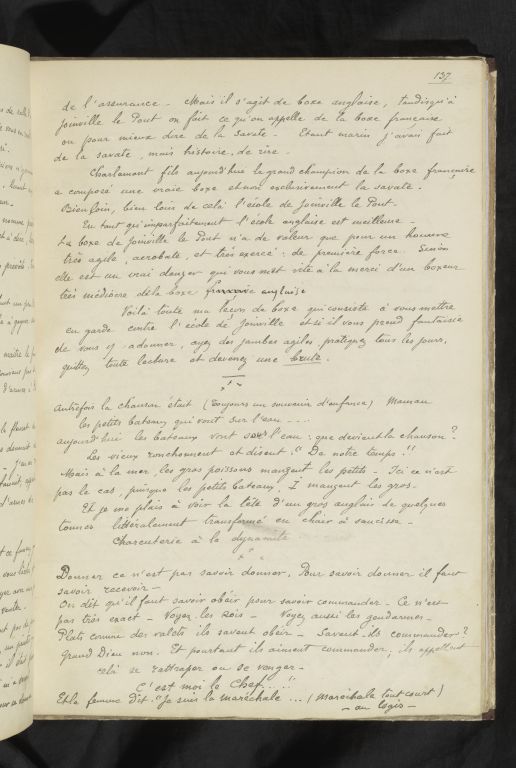 137
de l'assurance - Mais il s'agit de boxe anglaise, tandisqu'à
Joinville le Pont on fait ce qu'on appelle de la boxe francaise
on pour mieux dire de la savate - Etant marin j'avais fait
de la savate, mais histoire de rire -
Charlemont fils aujourd'hui le grand champion de la boxe française
a composé une vraie boxe et non exclusivement la savate.
Bien loin, bien loin de celà l'école de Joinville le Pont.
En tant qu'imparfaitement l'école anglaise est meilleure -
La boxe de Joinville le Pont n'a de valeur que pour un homme
très agile, acrobate, et très exercé: de première force. Sinon
elle est un vrai danger qui vous met vite à la merci d'un boxeur
très médiocre de la boxe anglaise
Voilà toute ma leçon de boxe qui consiste à vous mettre
en garde contre l'école de Joinville et si il vous prend fantaisie
de vous y adonner, ayez des jambes agiles, pratiquez tous les jours,
quittez toute lecture et devenez une brute.
Autrefois la chanson était (Toujours un souvenir d'enfance) Maman
les petits bateaux qui vont sur l'eau - ...
aujourd'hui les bateaux vont sous l'eau: que devient la chanson?
Les vieux ronchonnent et disent: "De notre temps!"
Mais à la mer, les gros poissons mangent les petits - Ici ce n'est
pas le cas, puisque les petits bateaux mangent les gros -
Et je me plais à voir la tête d'un gros anglais de quelques
tonnes littéralement transformé en chair à saucisse -
Charcuterie à la dynamite
Donner ce n'est pas savoir donner. Pour savoir donner il faut
savoir recevoir -
On dit qu'il faut savoir obéir pour savoir commander - Ce n'est
pas très exact - Voyez les Rois - Voyez aussi les gendarmes -
Plats comme des valets ils savent obéir - Savent-ils commander?
Grand Dieu non. Et pourtant ils aiment commander, ils appellent
celà se rattraper ou se venger -
C'est moi le Chef..."
Et la femme dit: "Je suis la maréchale ... (Maréchale tout court)
- au logis -